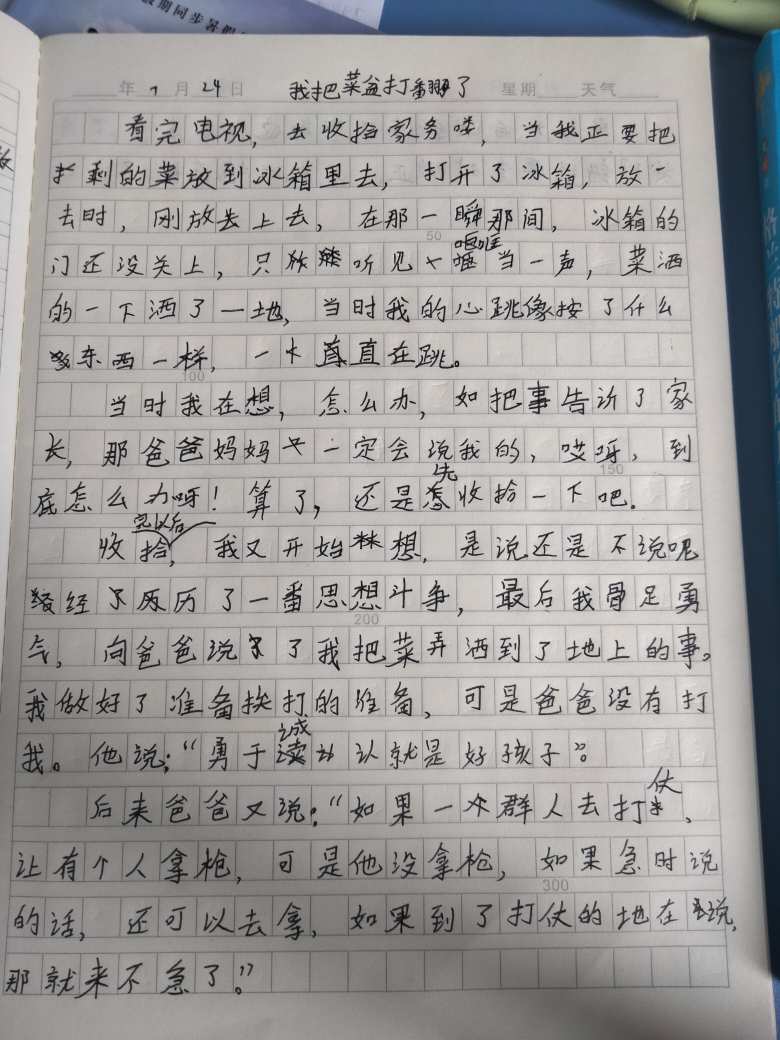 年 7 月 24 日 我把菜盆打翻了 星期 天气
看完电视，去收拾家务喽，当我正要把
剩的菜放到冰箱里去，打开了冰箱，放一
去时，刚放去上去，在那一瞬那间，冰箱的
50
门还没关上，只听见哐当一声，菜洒
的一下洒了一地，当时我的心跳像按了什么
东西一样，一直在跳。
100
当时我在想，怎么办，如把事告诉了家
长，那爸爸妈妈一定会说我的，哎呀，到
150
底怎么办呀！算了，还是先收拾一下吧。
收拾完以后，我又开始想，是说还是不说呢
经历了一番思想斗争，最后我骨足勇
200
气，向爸爸说了我把菜弄洒到了地上的事。
我做好了准备挨打的准备，可是爸爸没有打
我。他说：“勇于诚认就是好孩子”。
后来爸爸又说：“如果一群人去打仗，
让有个人拿枪，可是他没拿枪，如果急时说
300
的话，还可以去拿，如果到了打仗的地在说，
那就来不急了。”